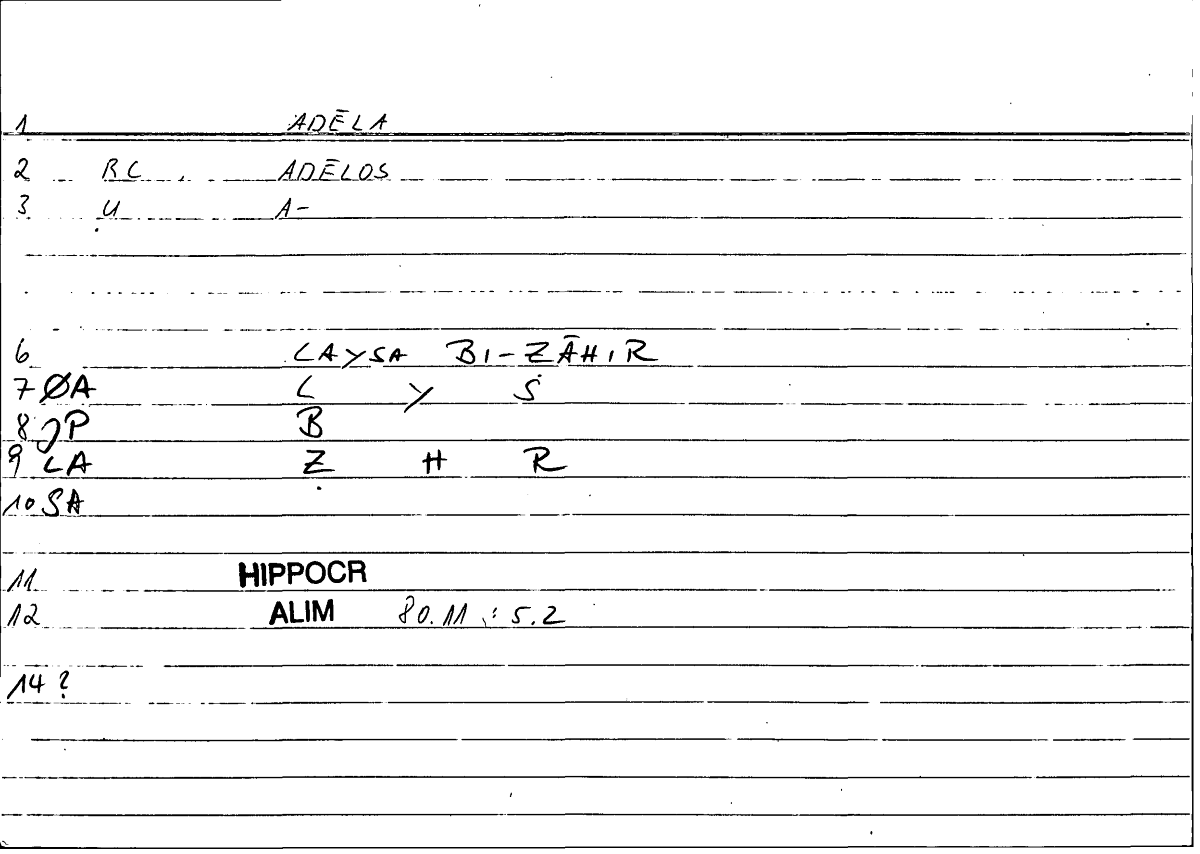 1 ADĒLA
2 RC. ADĒLOS
3 U A-
6 LAYSA BI-ẒĀHIR
7 ØA L Y S
8 JP B
9 LA Ẓ H R
10 SA
11 HIPPOCR
12 ALIM 80.11 : 5.2
14 ?